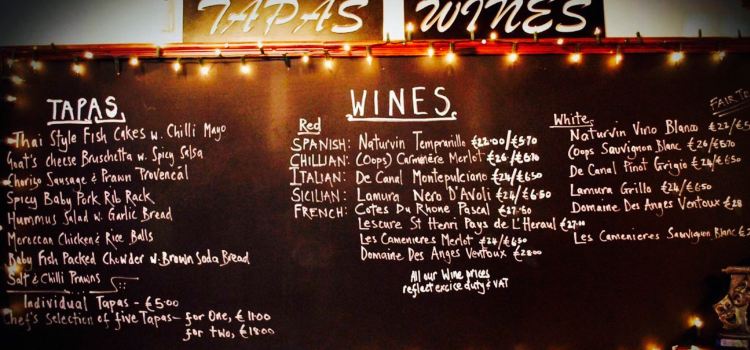 TAPAS
WINES
TAPAS
Thai Style Fish Cakes w. Chilli Mayo
Goat's cheese Bruschetta w. Spicy Salsa
Chorizo Sausage & Prawn Provencal
Spicy Baby Pork Rib Rack
Hummus Salad w. Garlic Bread
Moroccan Chicken & Rice Balls
Baby Fish Packed Chowder w. Brown Soda Bread
Salt & Chilli Prawns
Individual Tapas - €5.00
Chef's Selection of five Tapas - for One, €11.00
for two, €18.00
WINES
Red
SPANISH: Naturvin Tempranillo €22.00/€5.70
CHILLIAN: (Coops) Carminére Merlot €26/€6.70
ITALIAN: De Canal Montepulciano €24/€6.50
SICILIAN: Lamura Nero D'Avoli €24/€6.50
FRENCH: Cotes Du Rhone Pascal €27.60
Lescure St Henri Pays de L'Heraul €27.00
Les Camenieres Merlot €24/€6.50
Domaine Des Anges Ventoux €28.00
All our Wine prices
reflect excice duty & VAT
White
Naturvin Vino Blanco €22/
Coops Sauvignon Blanc €26/€6.70
De Canal Pinot Grigio €24/€6.50
Lamura Grillo €24/€6.50
Domaine Des Anges Ventoux €28
Les Camenieres Sauvignon Blanc